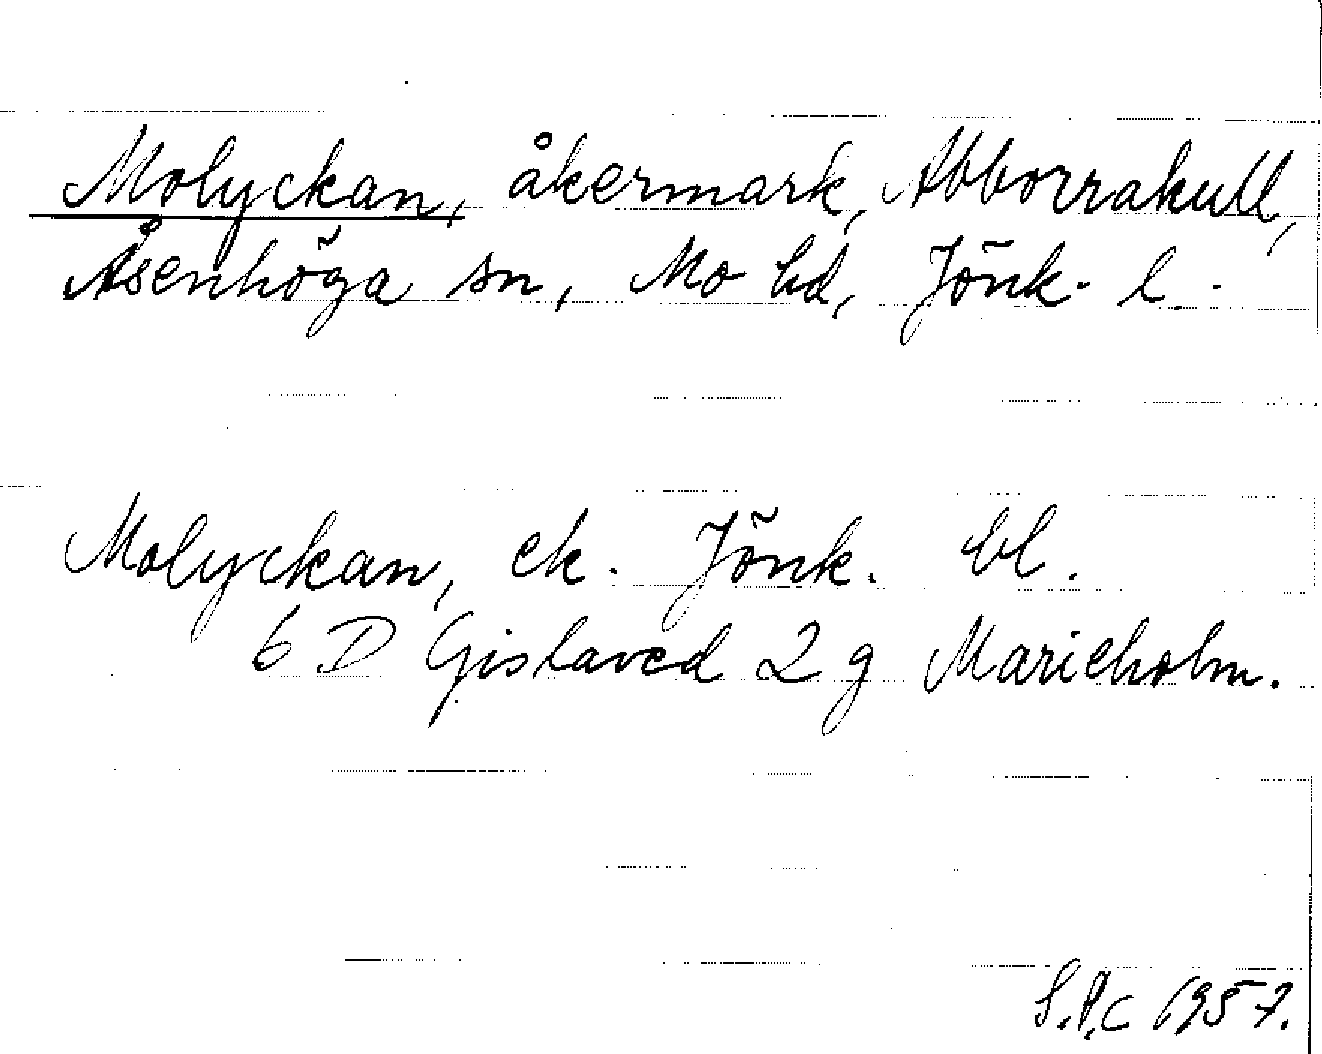 Molyckan, åkermark, Abborrakull,
Åsenhöga sn, Mo hd, Jönk. l.
Molyckan, ek. Jönk. bl.
6 D Gislaved 2 g Marieholm.
S.P.C 1957.